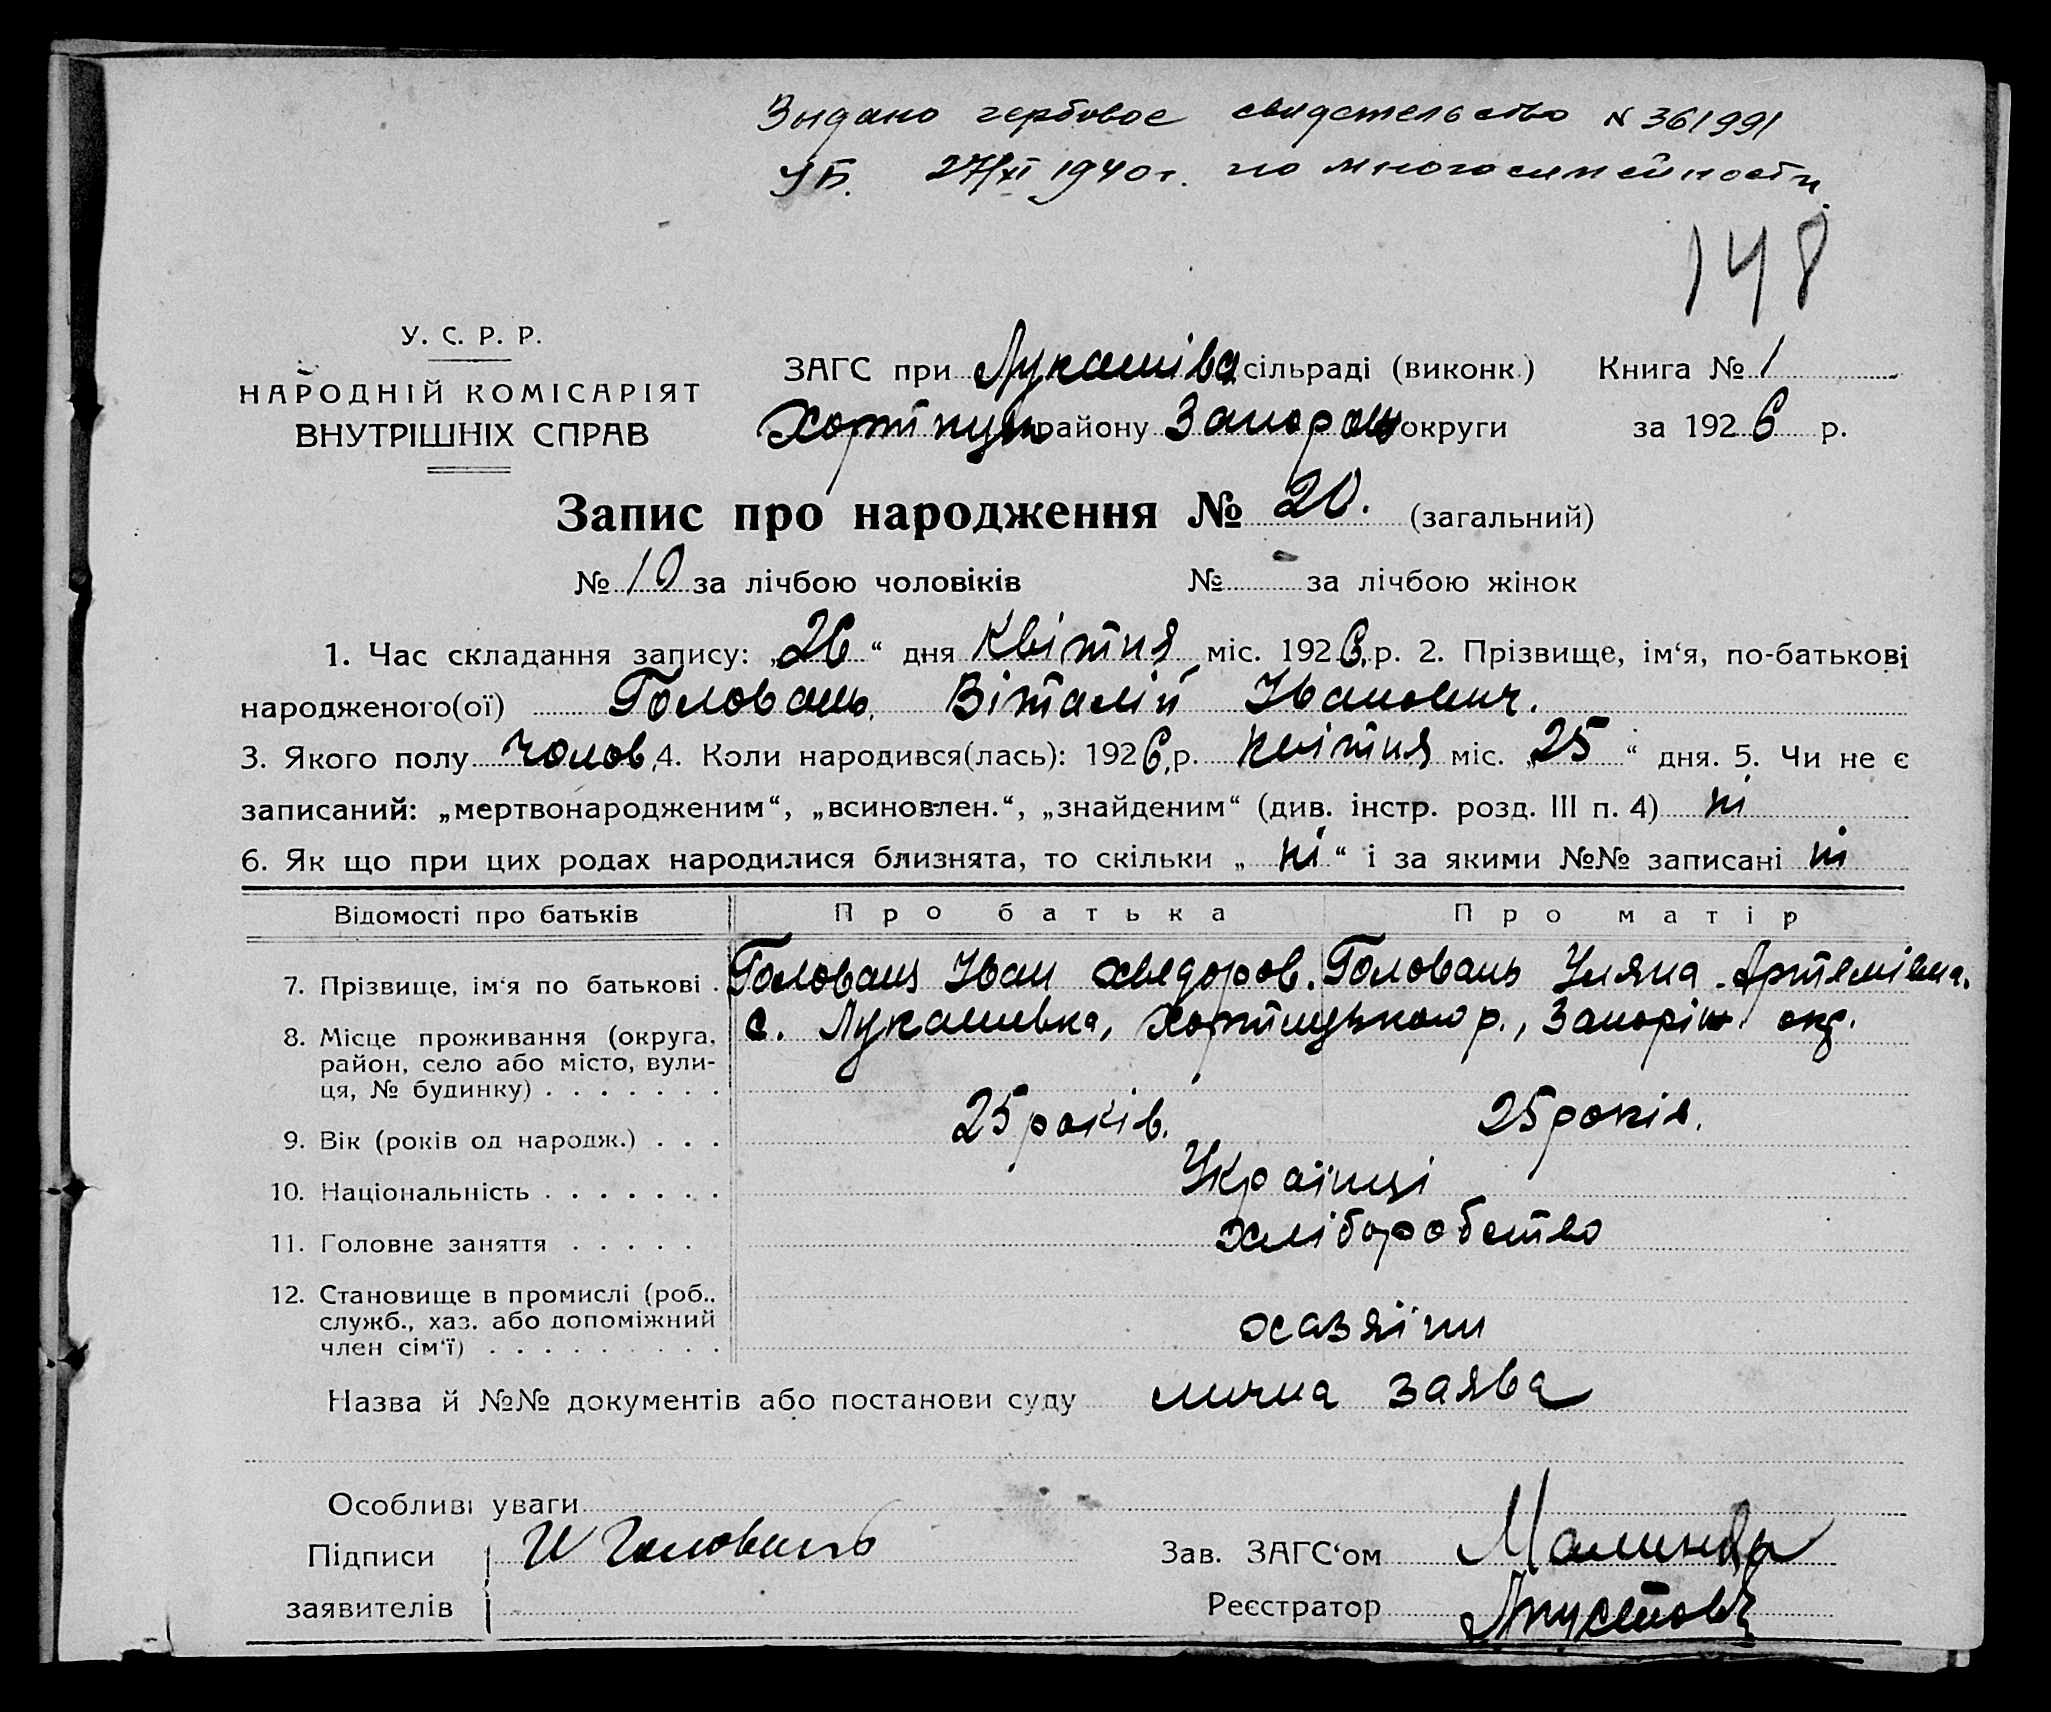 Выдано гербовое свидетельство N 361991
УБ. 27/XI 1940 г. по многосемейности
148
У. С. Р. Р.
НАРОДНІЙ КОМІСАРІЯТ
ВНУТРІШНІХ СПРАВ
ЗАГС при Лукашівс. сільраді (виконк.) Книга № 1
Хортицьк району Запорізьк округи за 1926 р.
Запис про народження № 20. (загальний)
№ 10 за лічбою чоловіків № - за лічбою жінок
1. Час складання запису: „26“ дня Квітня міс. 1926 р. 2. Прізвище, ім‘я, по-батькові
народженого(ої) Головань Віталій Іванович.
3. Якого полу чолов. 4. Коли народився(лась): 1926 р. квітня міс. „25“ дня. 5. Чи не є
записаний: „мертвонародженим“, „всиновлен.“, „знайденим“ (див. інстр. розд. III п. 4) ні
6. Як що при цих родах народилися близнята, то скільки „ ні “ і за якими №№ записані ні
Відомості про батьків Про батька Про матір
7. Прізвище, ім‘я по батькові . Головань Іван Хведоров. Головань Уляна Артемівна.
8. Місце проживання (округа, с. Лукашивка, Хортицького р., Запоріж. окр.
район, село або місто, вули-
ця, № будинку) . . . . . . .
9. Вік (років од народж.) . . . 25 років. 25 років.
10. Національність . . . . . . . Українці
11. Головне заняття . . . . . хліборобство
12. Становище в промислі (роб..
служб., хаз. або допоміжний хазяїни
член сім‘ї) . . . . . . . . .
Назва й №№ документів або постанови суду лична заява
Особливі уваги
Підписи И Головань Зав. ЗАГС‘ом
заявителів Реєстратор